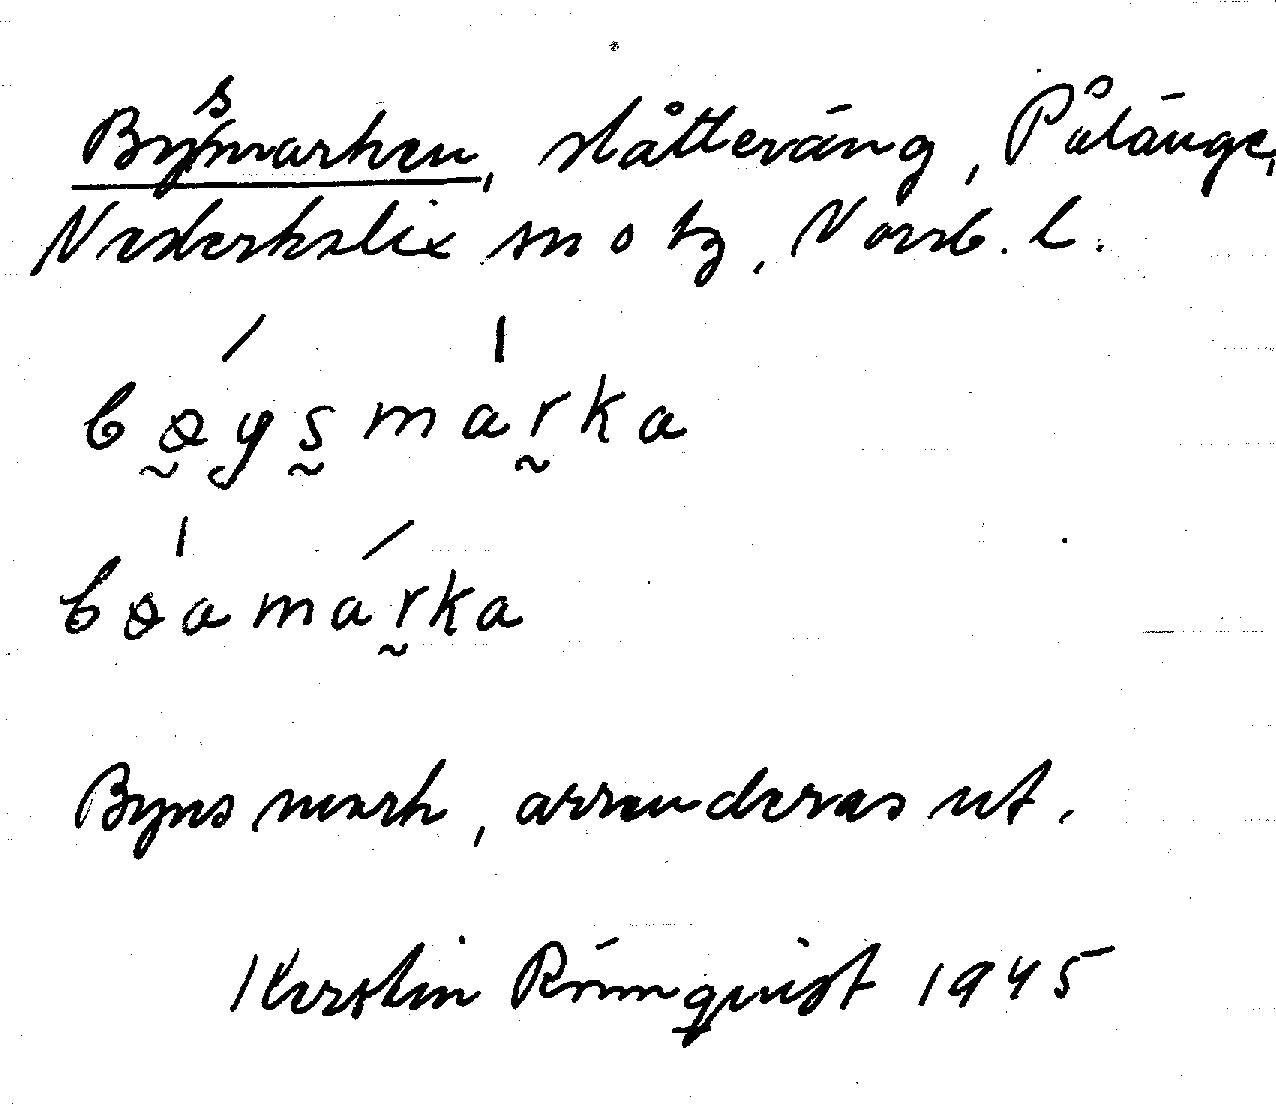 Bysmarken, slåttеräng, Pålänge,
Nederkalix sn o tg, Norrb. l.
bøysmarka
bøamarka
Byns mark, arrenderas ut.
Kerstin Rönnquist 1945